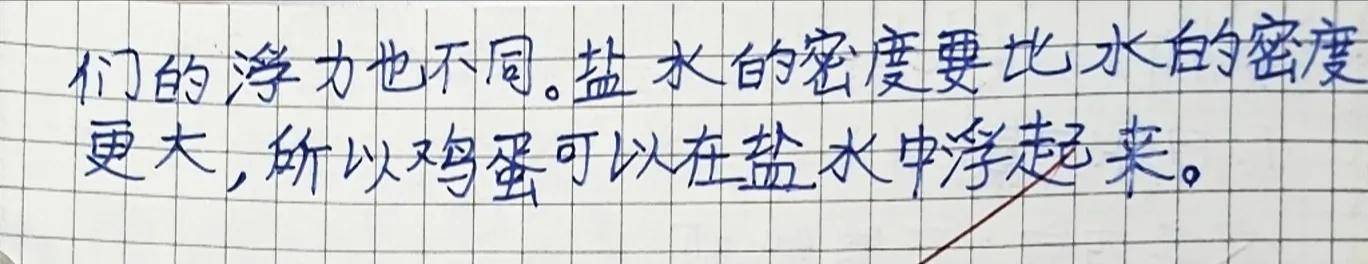 们的浮力也不同。盐水的密度要比水的密度
更大,所以鸡蛋可以在盐水中浮起来。